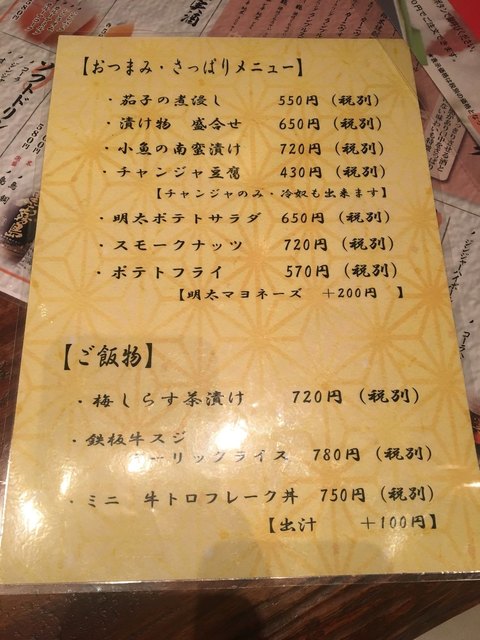 【おつまみ・さっぱりメニュー】
・茄子の煮浸し 550円（税別）
・漬け物 盛合せ 650円（税別）
・小魚の南蛮漬け 720円（税別）
・チャンジャ豆腐 430円（税別）
【チャンジャのみ・冷奴も出来ます】
・明太ポテトサラダ 650円（税別）
・スモークナッツ 720円（税別）
・ポテトフライ 570円（税別）
【明太マヨネーズ ＋200円 】
【ご飯物】
・梅しらす茶漬け 720円（税別）
・鉄板牛スジ
ガーリックライス 780円（税別）
・ミニ 牛トロフレーク丼 750円（税別）
【出汁 ＋100円】
ソフトドリン